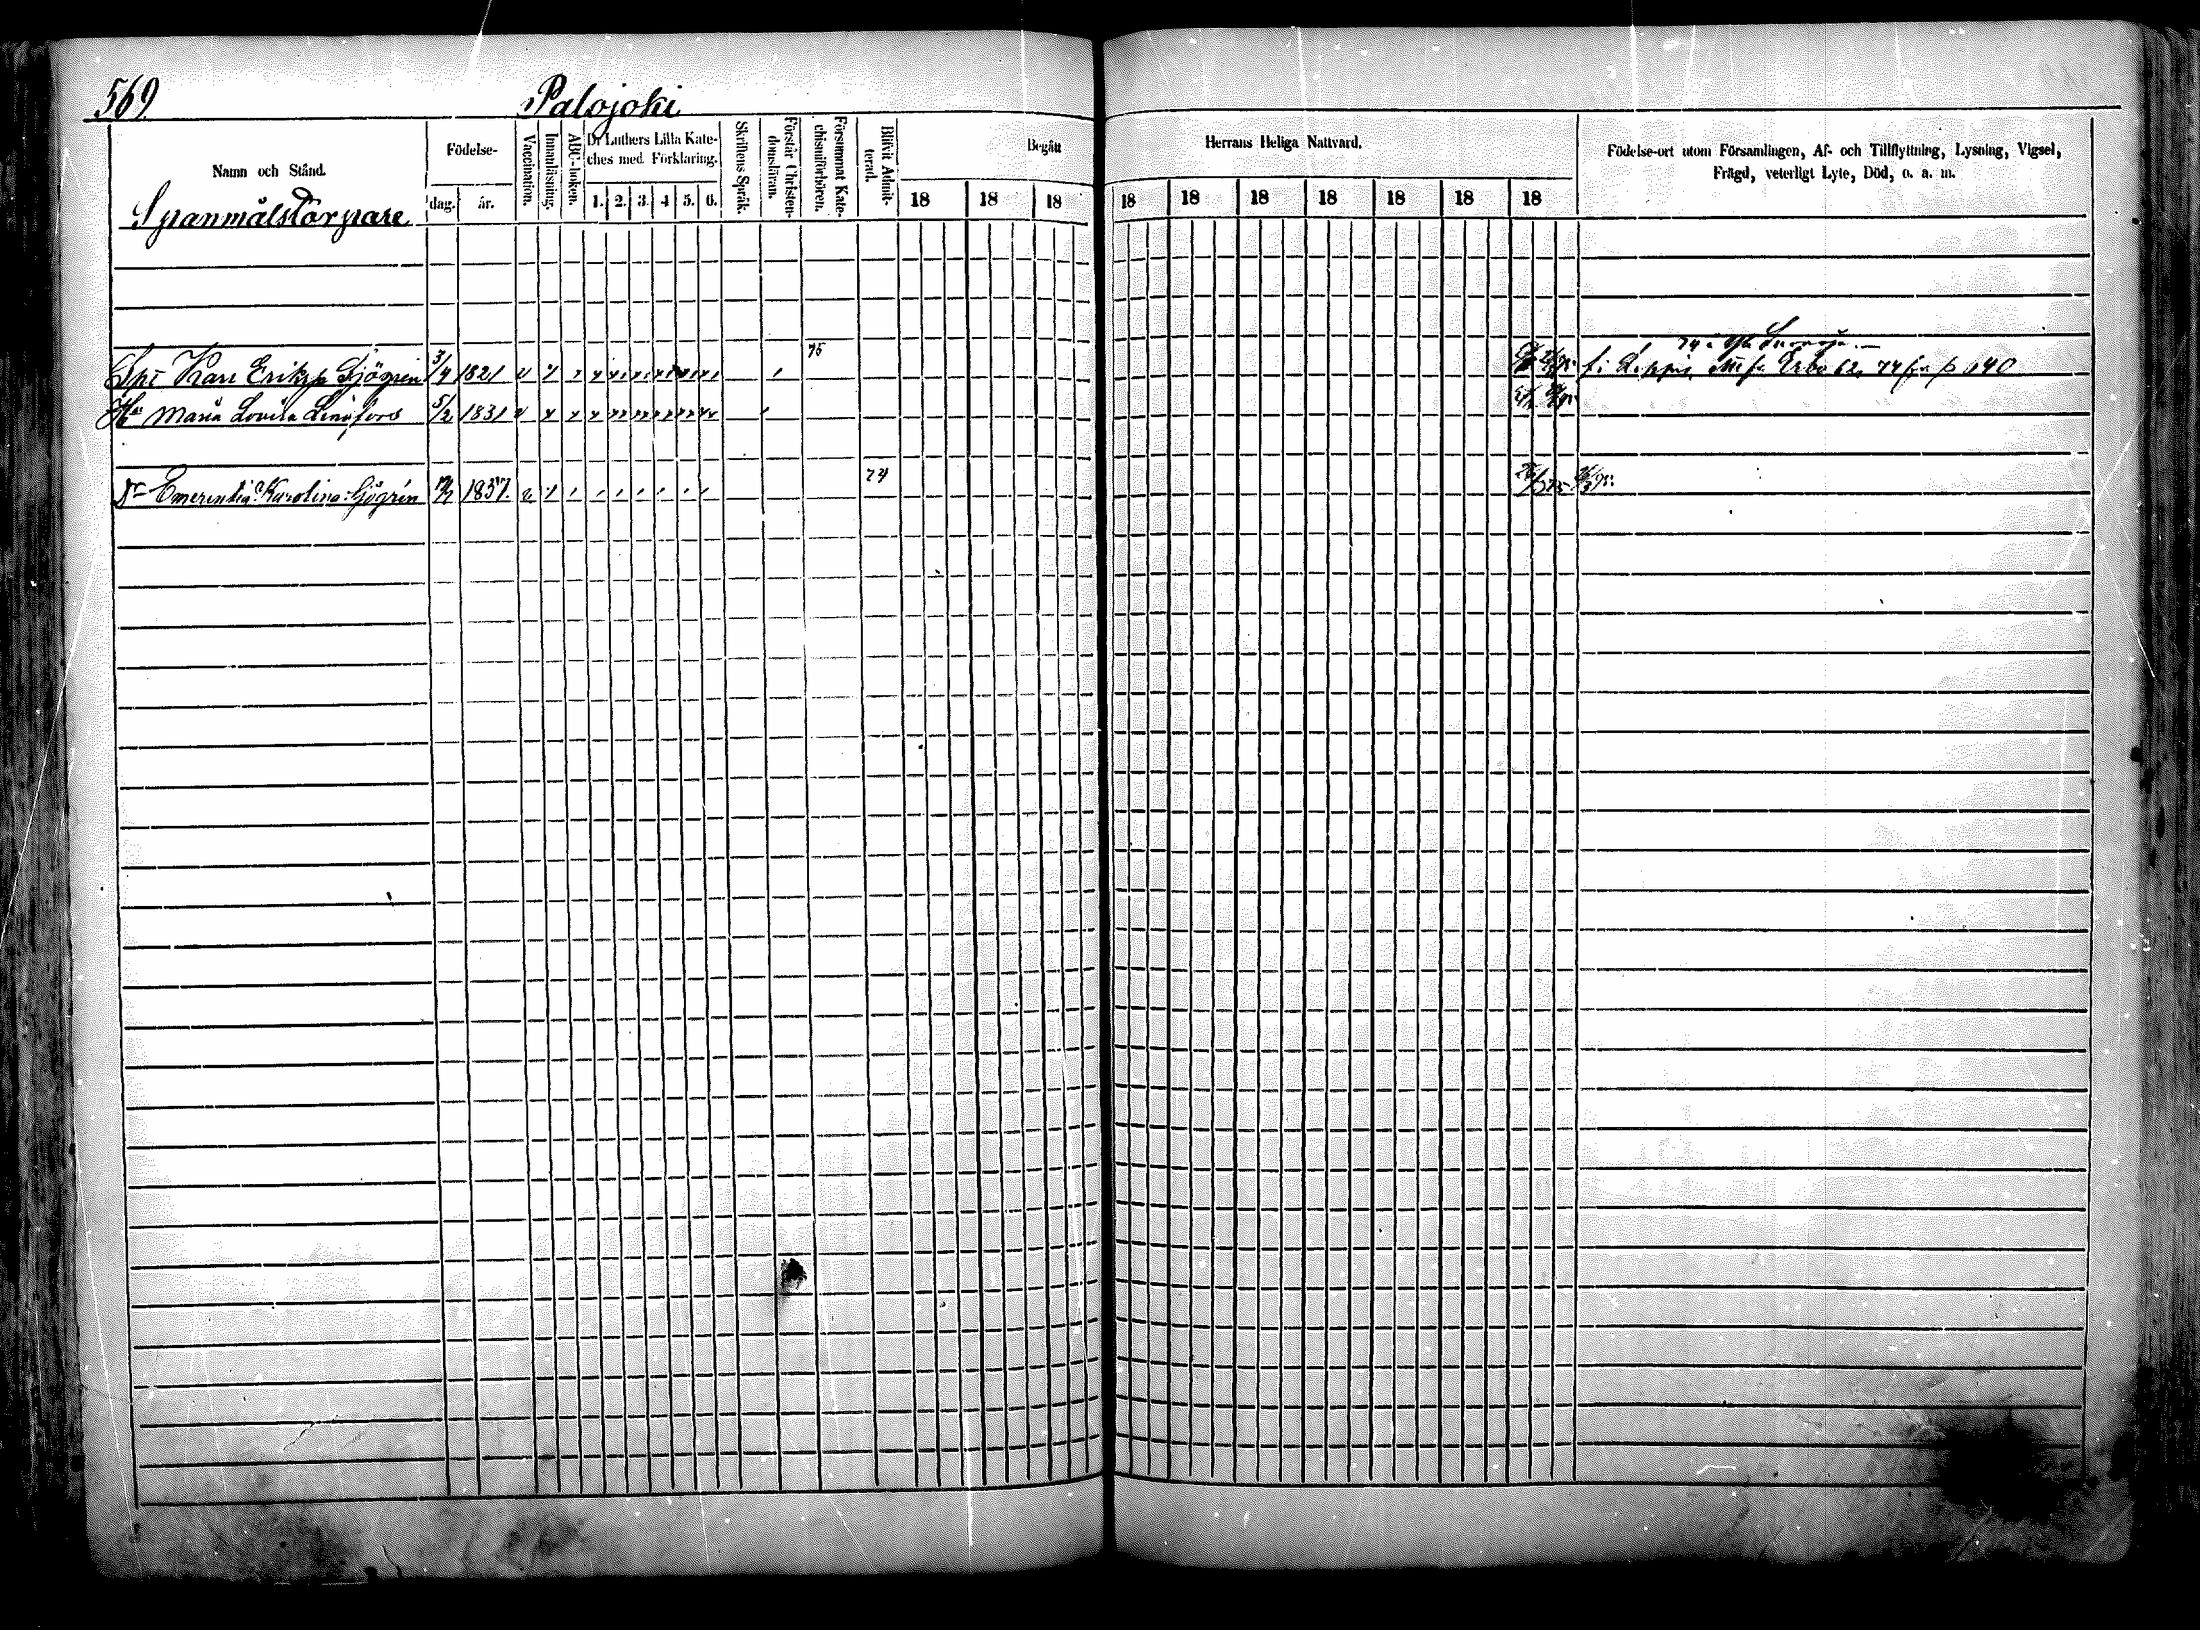 569
Palojoki
Namn och Stånd.
Födelse-
dag.
år.
Vaccination.
Innanläsning.
ABC-boken.
Dr Luthers Lilla Kate-
ches med Förklaring.
1. 2. 3. 4. 5. 6.
Skriftens Språk.
Förstår Christen-
domsläran.
Försummat Kate-
chismiförhören.
Blifvit Admit-
terad.
Begått
Herrans Heliga Nattvard.
18 18 18 18 18 18 18 18 18 18
Födelse-ort utom Församlingen, Af- och Tillflyttning, Lysning, Vigsel,
Frägd, veterligt Lyte, Död, o. a. m.
Spanmålstorpare
75
Karl Eriksson Sjögren 3/4 1821 v
62. 74 p 640
Hu Maria Lovisa Lindfors 5/2 1831 v
Dr Emerentia Karolina Sjögrén 1857. v 74